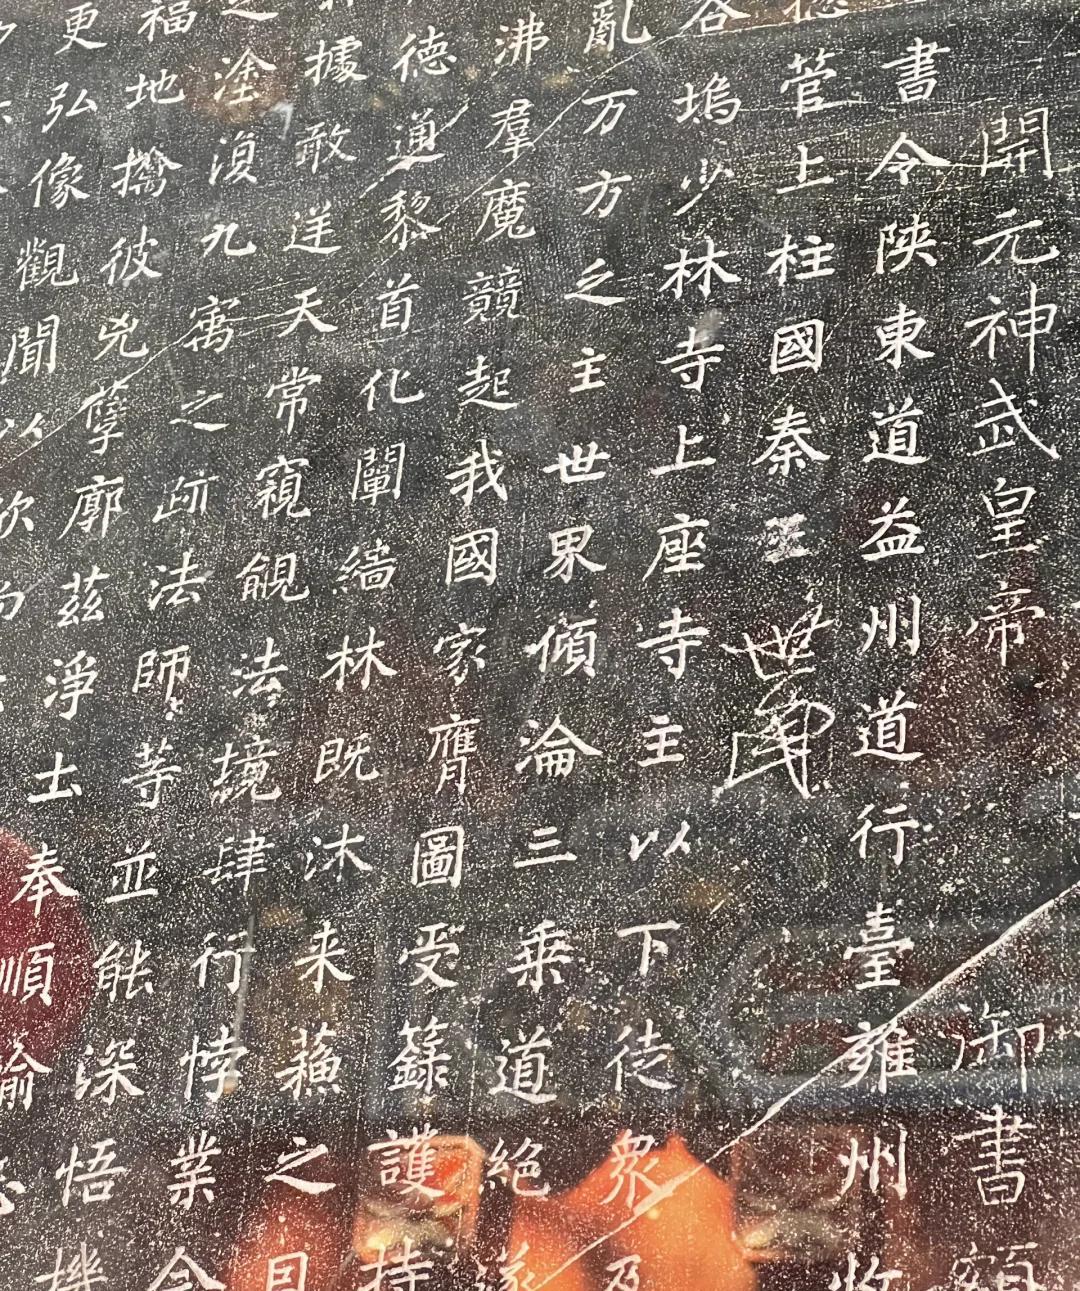 開元神武皇帝 御書額
書令陝東道益州道行臺雍州牧
德管上柱國秦王世民
谷塢少林寺上座寺主以下徒衆及
亂万方之主世界傾淪三乗道絶遂
沸羣魔競起我國家膺圖受籙護持
德通黎首化闡緇林既沐来蘓之
據敢逆天常窺覦法境肆行悖業今
之塗復九㝢之跡法師等並能深悟機
福地擒彼兇孽廓茲淨土奉順
更弘像觀聞以欣